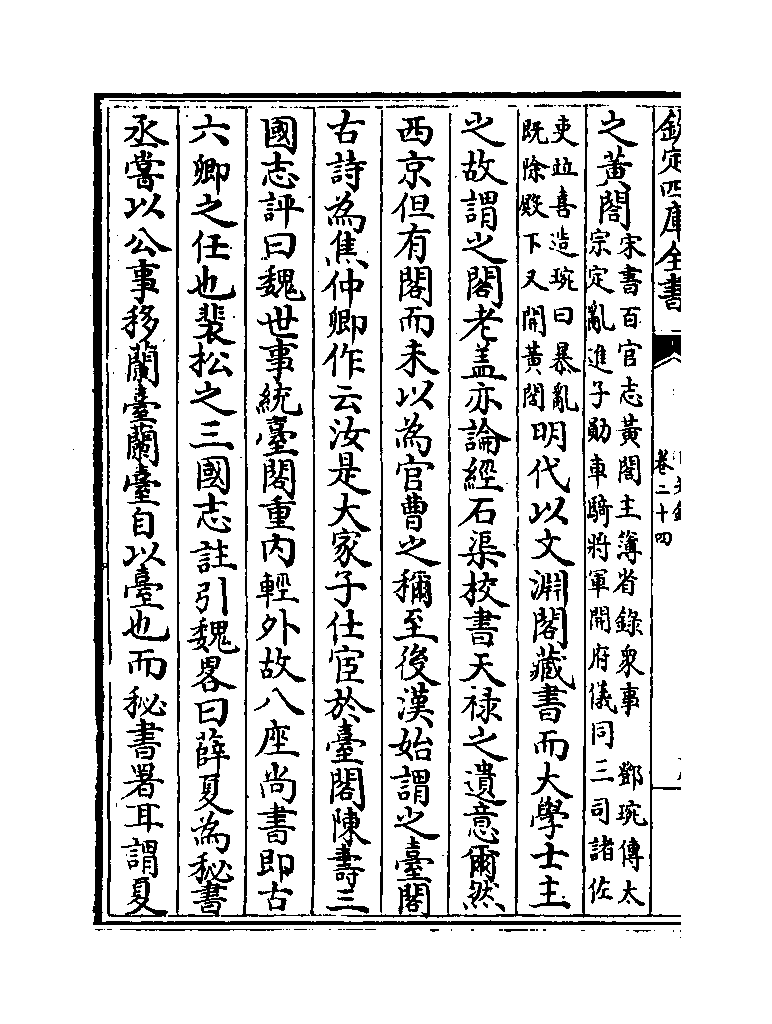 欽定四庫全書
卷二十四
之黄閣宋書百官志黄閣主簿省錄衆事　鄧琬傳太
宗定亂進子勛車騎將軍開府儀同三司諸佐
吏竝喜造琬曰暴亂
既除殿下又開黄閣明代以文淵閣藏書而大學士主
之故謂之閣老盖亦論經石渠校書天禄之遺意爾然
西京但有閣而未以為官曹之稱至後漢始謂之臺閣
古詩為焦仲卿作云汝是大家子仕宦於臺閣陳壽三
國志評曰魏世事統臺閣重内輕外故八座尚書即古
六卿之任也裴松之三國志註引魏畧曰薛夏為秘書
丞嘗以公事移蘭臺蘭臺自以臺也而秘書署耳謂夏